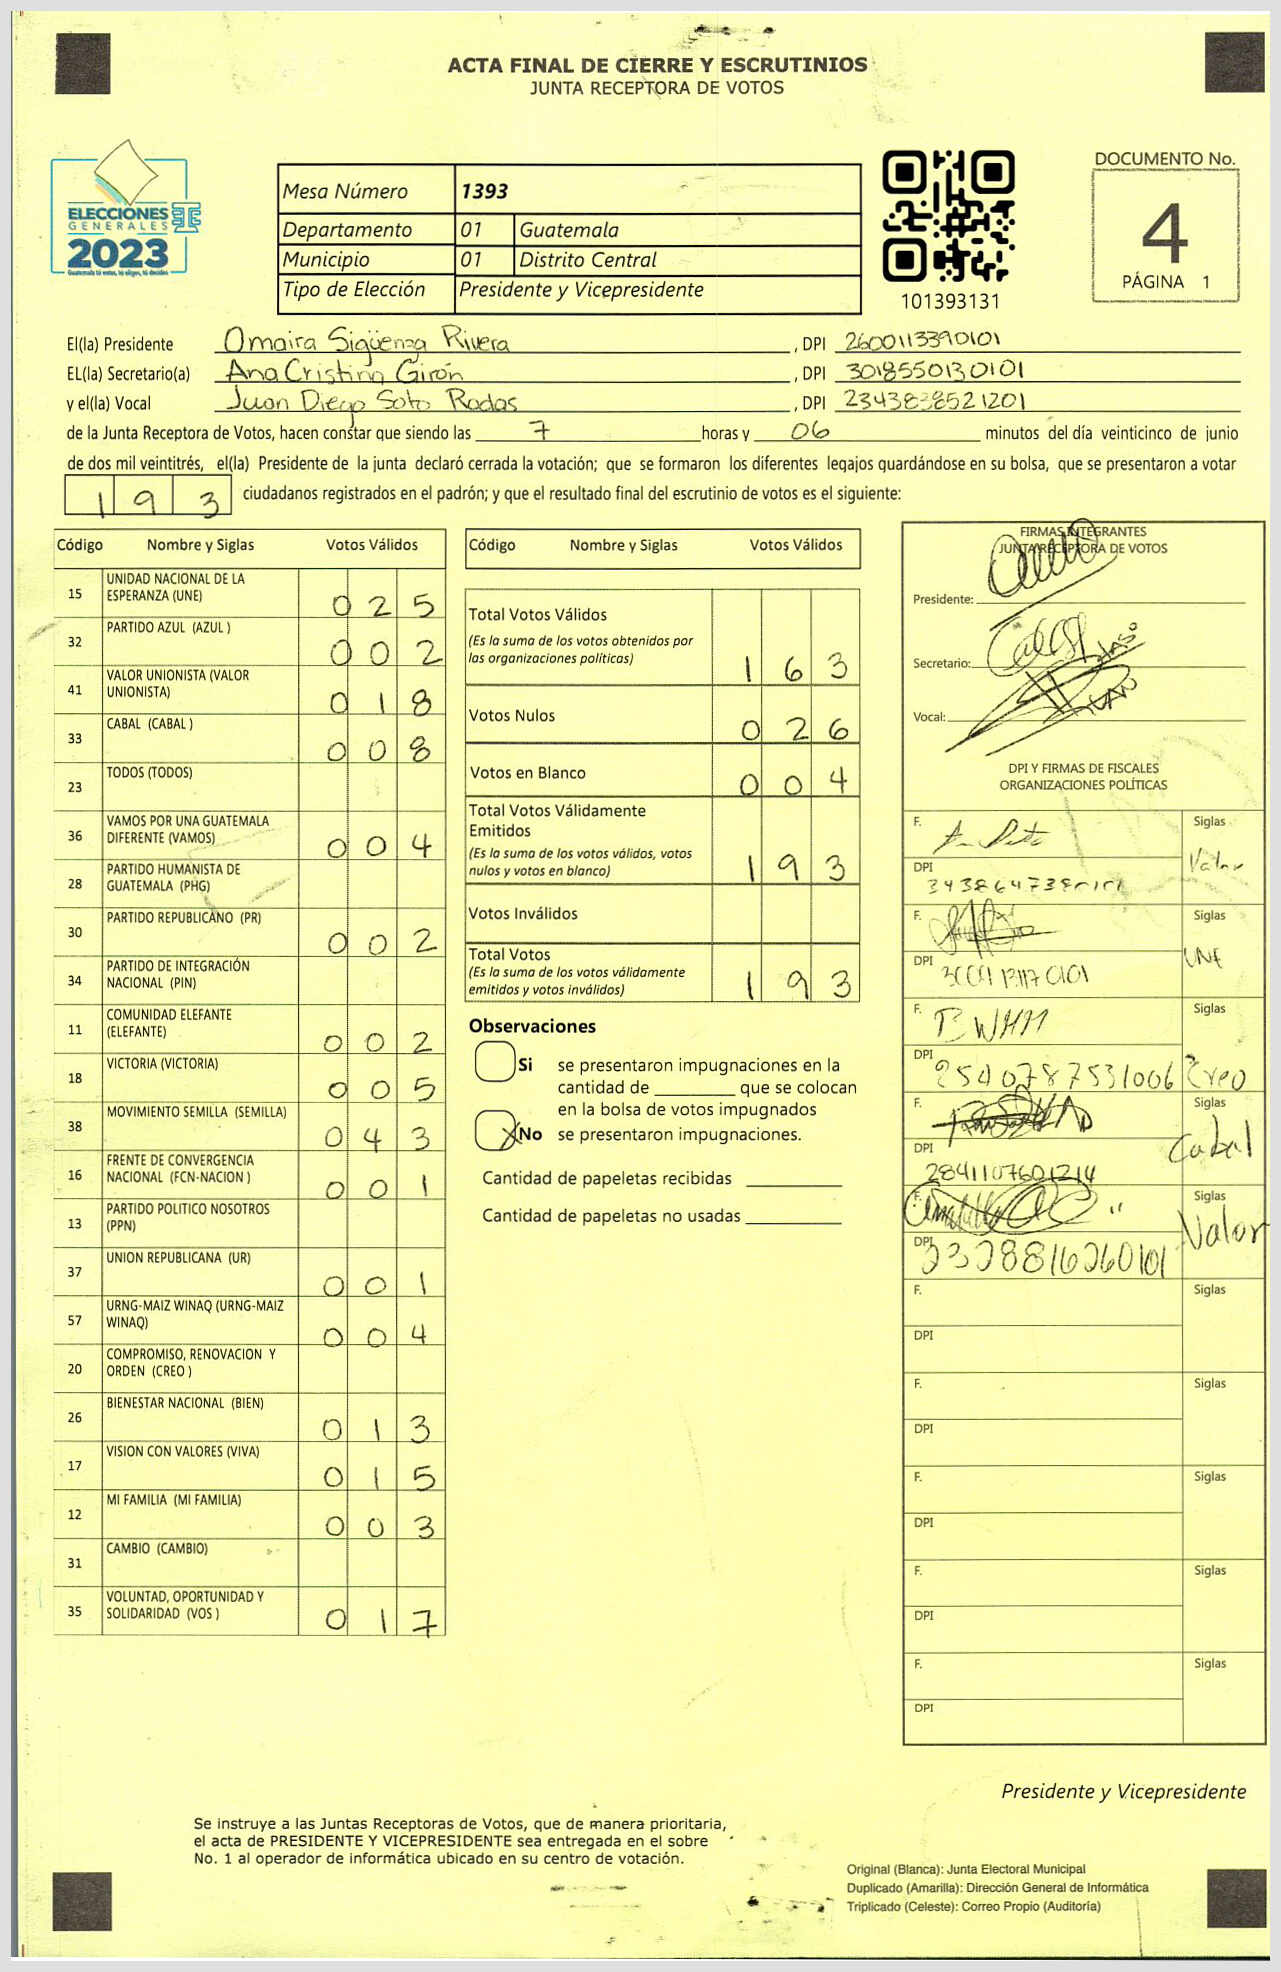 ACTA FINAL DE CIERRE Y ESCRUTINIOS
JUNTA RECEPTORA DE VOTOS
ELECCIONES
GENERALES
2023
Guatemala tú votas, tú eliges, tú decides
Mesa Número 1393
Departamento 01 Guatemala
Municipio 01 Distrito Central
Tipo de Elección Presidente y Vicepresidente
101393131
DOCUMENTO No.
4
PÁGINA 1
El(la) Presidente Omaira Sigüenza Rivera, DPI 2600113390101
EL(la) Secretario(a) Ana Cristina Girón, DPI 3018550130101
y el(la) Vocal Juan Diego Soto Rodas, DPI 2343838521201
de la Junta Receptora de Votos, hacen constar que siendo las 7 horas y 06 minutos del día veinticinco de junio
de dos mil veintitrés, el(la) Presidente de la junta declaró cerrada la votación; que se formaron los diferentes legajos guardándose en su bolsa, que se presentaron a votar
193 ciudadanos registrados en el padrón; y que el resultado final del escrutinio de votos es el siguiente:
Código Nombre y Siglas Votos Válidos
15 UNIDAD NACIONAL DE LA
ESPERANZA (UNE) 025
32 PARTIDO AZUL (AZUL ) 002
41 VALOR UNIONISTA (VALOR
UNIONISTA) 018
33 CABAL (CABAL ) 008
23 TODOS (TODOS)
36 VAMOS POR UNA GUATEMALA
DIFERENTE (VAMOS) 004
28 PARTIDO HUMANISTA DE
GUATEMALA (PHG)
30 PARTIDO REPUBLICANO (PR) 002
34 PARTIDO DE INTEGRACIÓN
NACIONAL (PIN)
11 COMUNIDAD ELEFANTE
(ELEFANTE) 002
18 VICTORIA (VICTORIA) 005
38 MOVIMIENTO SEMILLA (SEMILLA) 043
16 FRENTE DE CONVERGENCIA
NACIONAL (FCN-NACION ) 001
13 PARTIDO POLITICO NOSOTROS
(PPN)
37 UNION REPUBLICANA (UR) 001
57 URNG-MAIZ WINAQ (URNG-MAIZ
WINAQ) 004
20 COMPROMISO, RENOVACION Y
ORDEN (CREO )
26 BIENESTAR NACIONAL (BIEN) 013
17 VISION CON VALORES (VIVA) 015
12 MI FAMILIA (MI FAMILIA) 003
31 CAMBIO (CAMBIO)
35 VOLUNTAD, OPORTUNIDAD Y
SOLIDARIDAD (VOS ) 017
Código Nombre y Siglas Votos Válidos
Total Votos Válidos
(Es la suma de los votos obtenidos por
las organizaciones políticas) 163
Votos Nulos 026
Votos en Blanco 004
Total Votos Válidamente
Emitidos
(Es la suma de los votos válidos, votos
nulos y votos en blanco) 193
Votos Inválidos
Total Votos
(Es la suma de los votos válidamente
emitidos y votos inválidos) 193
Observaciones
Si se presentaron impugnaciones en la
cantidad de ________ que se colocan
en la bolsa de votos impugnados
X No se presentaron impugnaciones.
Cantidad de papeletas recibidas
Cantidad de papeletas no usadas
FIRMAS INTEGRANTES
JUNTA RECEPTORA DE VOTOS
Presidente:
Secretario:
Vocal:
DPI Y FIRMAS DE FISCALES
ORGANIZACIONES POLÍTICAS
F. Siglas
DPI Valor
F. Siglas
DPI UNE
F. BWHM Siglas
DPI 2540787531006 Creo
F. Siglas
DPI 2841107601214 Cabal
F. Siglas
DPI 2328816260101 Valor
F. Siglas
DPI
F. Siglas
DPI
F. Siglas
DPI
F. Siglas
DPI
F. Siglas
DPI
Presidente y Vicepresidente
Se instruye a las Juntas Receptoras de Votos, que de manera prioritaria,
el acta de PRESIDENTE Y VICEPRESIDENTE sea entregada en el sobre
No. 1 al operador de informática ubicado en su centro de votación.
Original (Blanca): Junta Electoral Municipal
Duplicado (Amarilla): Dirección General de Informática
Triplicado (Celeste): Correo Propio (Auditoría)